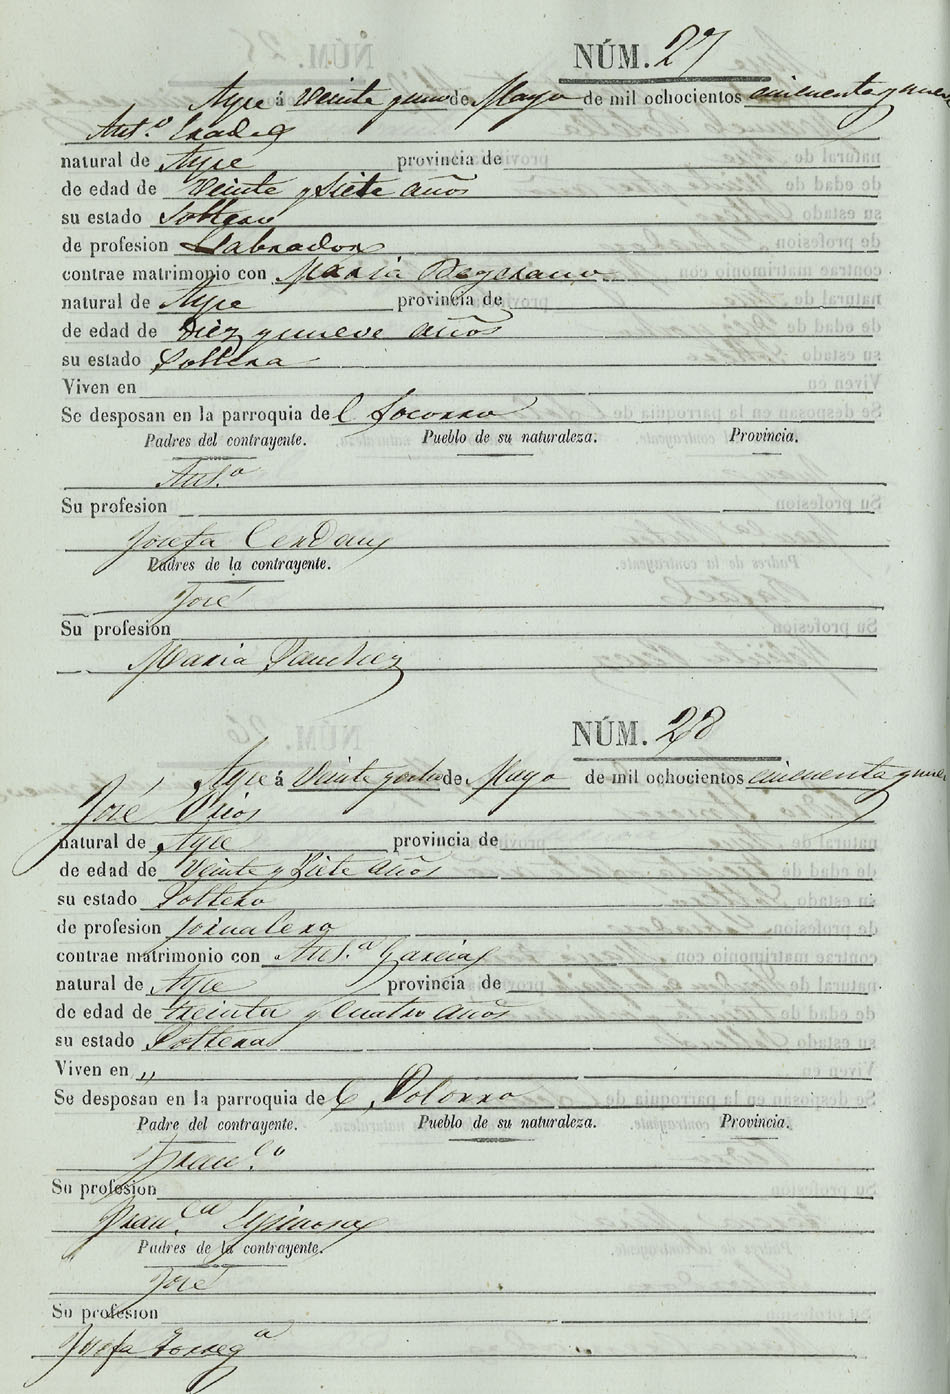 NÚM. 27
Aspe á veinte y uno de Mayo de mil ochocientos cincuenta y nueve
Ant.º
natural de Aspe provincia de
de edad de veinte y siete años
su estado Soltero
de profesion Labrador
contrae matrimonio con Maria
natural de Aspe provincia de
de edad de diez y nueve años
su estado Soltera
Viven en
Se desposan en la parroquia de l Socorro
Padres del contrayente. Pueblo de su naturaleza. Provincia.
Ant.º
Su profesion
Josefa Cerdan
Padres de la contrayente.
José
Su profesion
Maria Sanchez
NÚM. 28
Aspe á veinte y ocho de Mayo de mil ochocientos cincuenta y nueve
José
natural de Aspe provincia de
de edad de veinte y siete años
su estado Soltero
de profesion Jornalero
contrae matrimonio con Ant.ª Garcia
natural de Aspe provincia de
de edad de treinta y cuatro años
su estado Soltera
Viven en „
Se desposan en la parroquia de
Padre del contrayente. Pueblo de su naturaleza. Provincia.
Fran.co
Su profesion
Fran.ca Espinosa
Padres de la contrayente.
José
Su profesion
Josefa